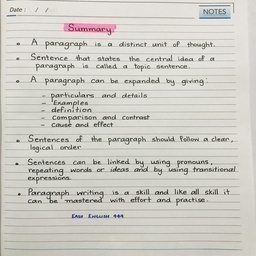 Date : / /
NOTES
Summary
A paragraph is a distinct unit of thought.
Sentence that states the central idea of a
paragraph is called a topic sentence.
A paragraph can be expanded by giving:
- particulars and details
- Examples
- definition
- comparison and contrast
- cause and effect
Sentences of the paragraph should follow a clear,
logical order
Sentences can be linked by using pronouns,
repeating words or ideas and by using transitional
expressions.
Paragraph writing is a skill and like all skill it
can be mastered with effort and practise.